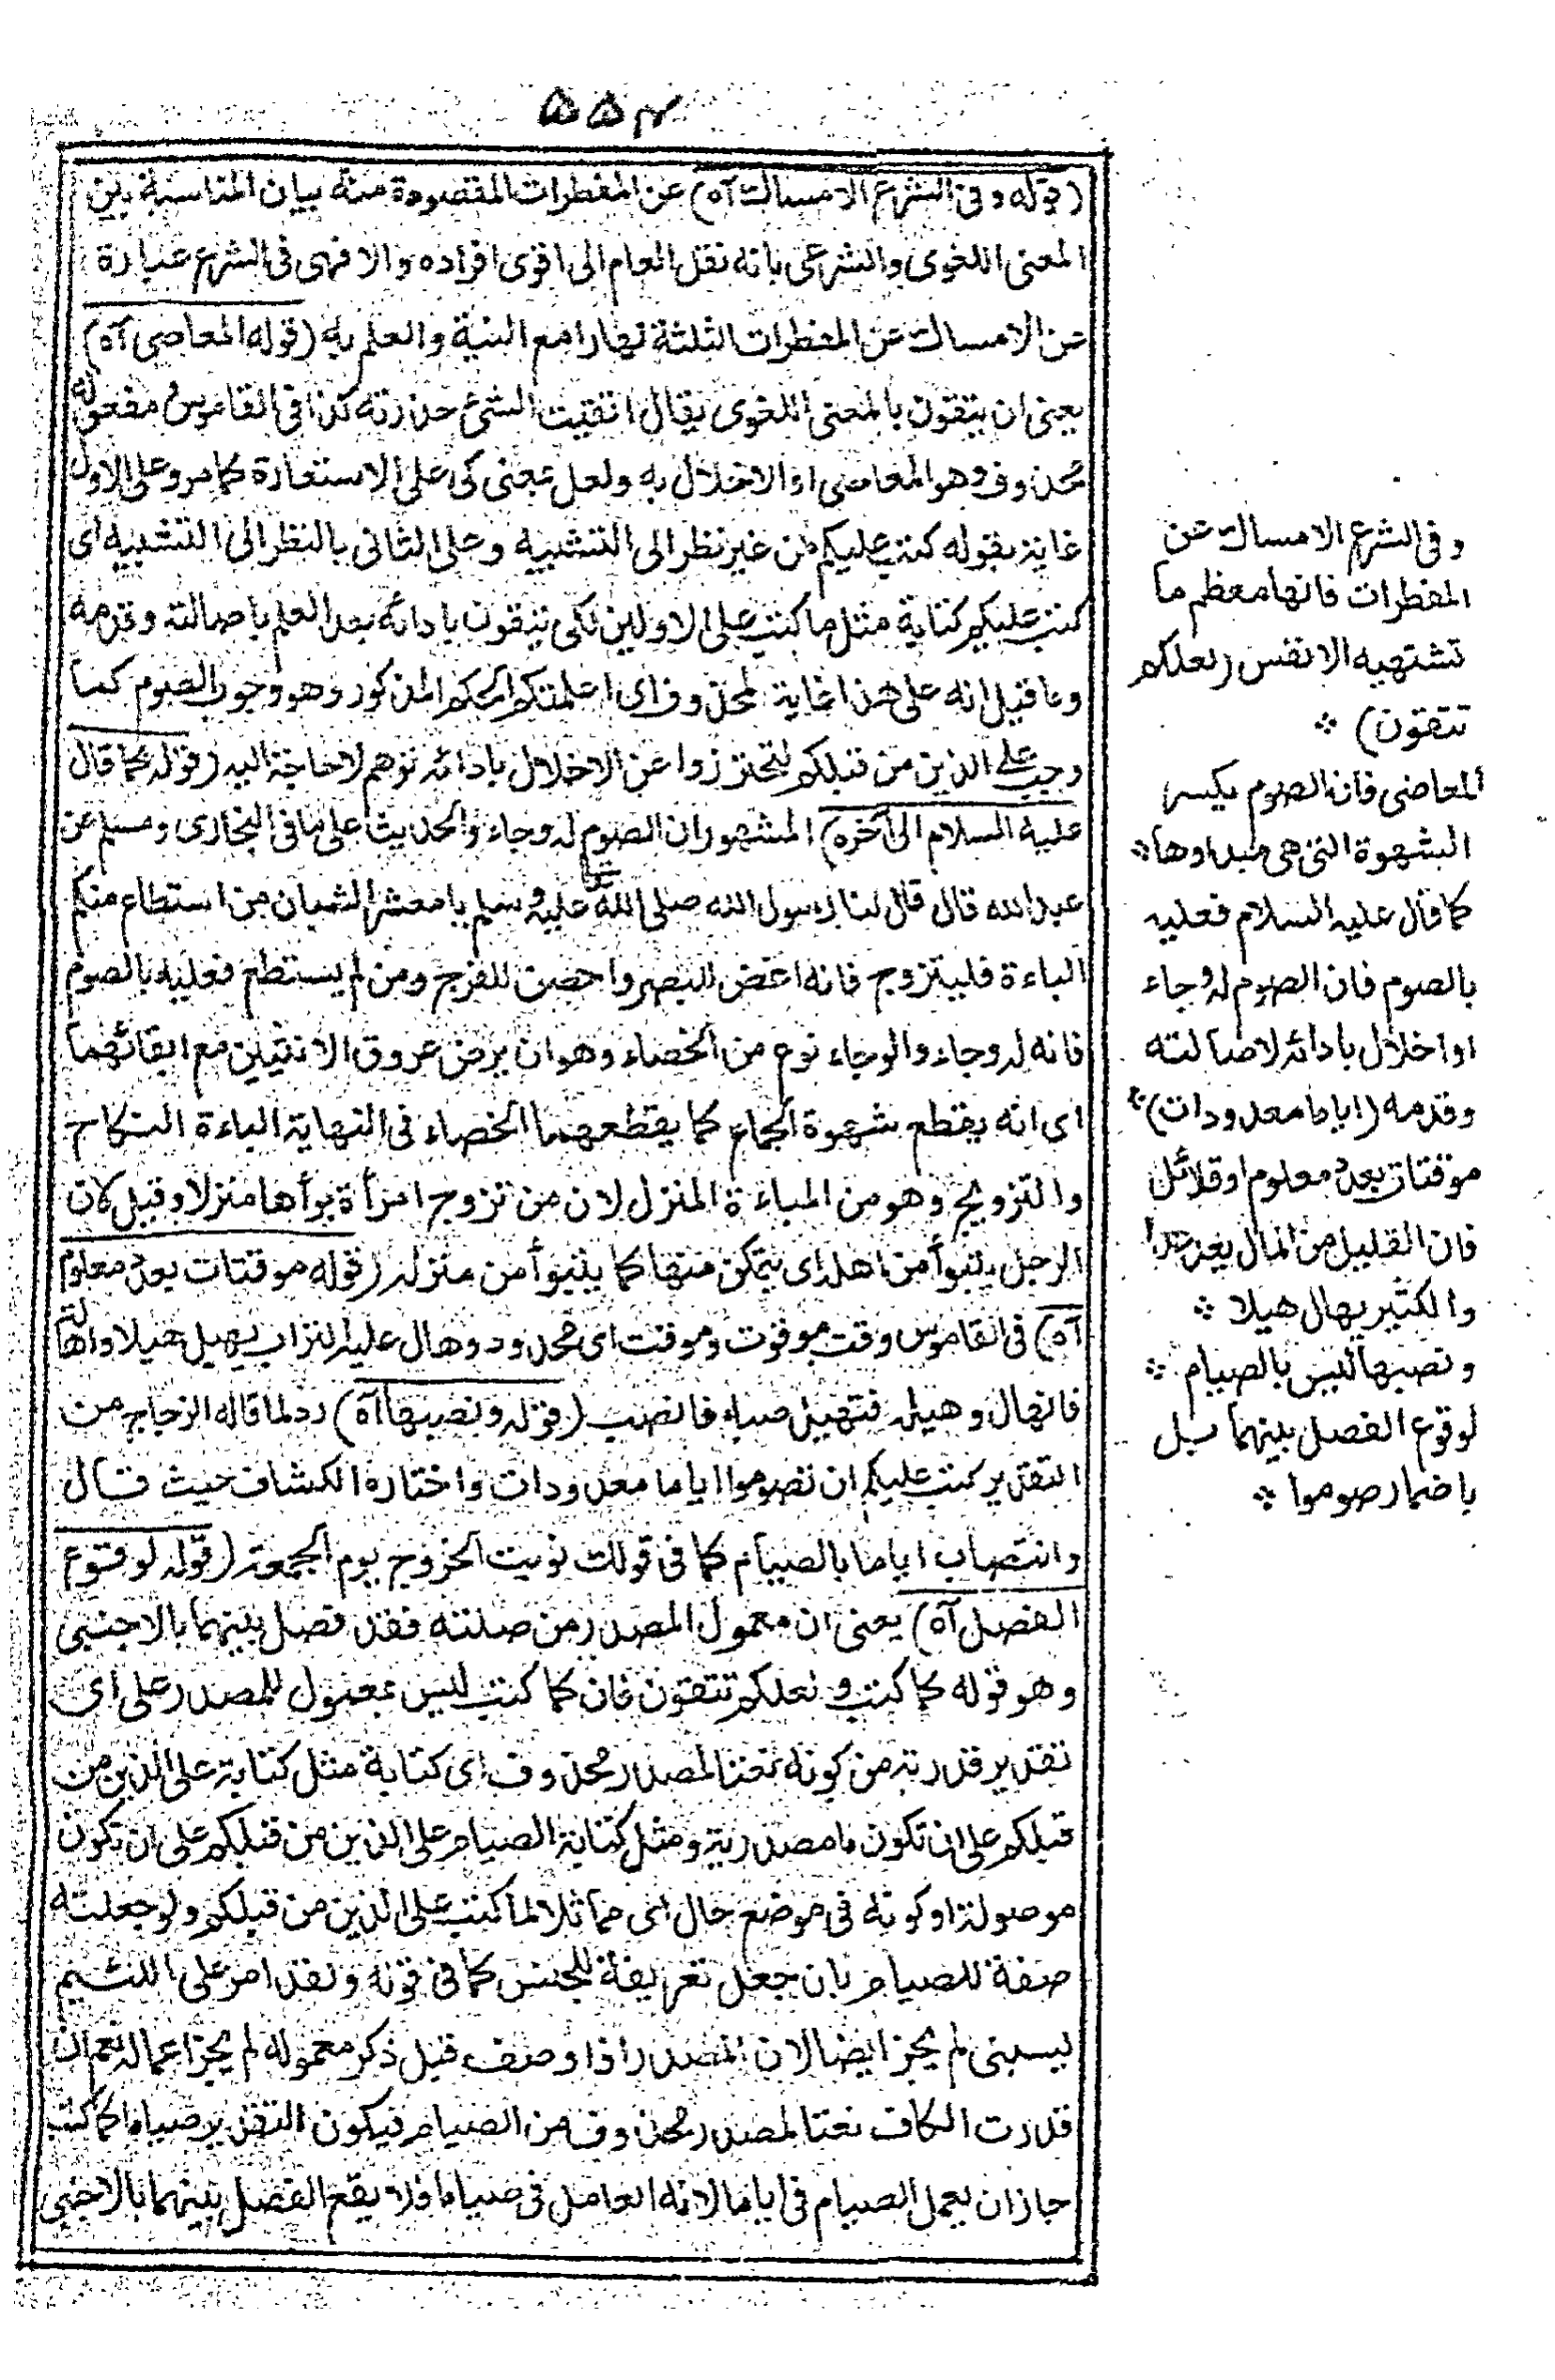 ۵۵۴
(قوله وفى الشرع الامساك آه) عن المفطرات المقصودة منه بيان المناسبة بين
المعنى اللغوى والشرعى بانه نقل العام الى اقوى افراده والا فهى فى الشرع عبارة
عن الامساك عن المفطرات الثلثة نهارا مع النية والعلم به (قوله المعاصى آه)
يعنى ان يتقون بالمعنى اللغوى يقال اتقيت الشئ حذرته كذا فى القاموس مفعوله
محذوف وهو المعاصى او الاخلال به ولعل بمعنى كى على الاستعارة كما مر وعلى الاول
غاية بقوله كتب عليكم من غير نظر الى التشبيه وعلى الثانى بالنظر الى التشبيه اى
كتب عليكم كتابة مثل ما كتب على الاولين لكى تتقون بادائه بعد العلم باصالته وقدمه
وما قيل انه على هذا غاية لمحذوف اى اعلمتكم الحكم المذكور وهو وجوب الصوم كما
وجب على الذين من قبلكم لتحترزوا عن الاخلال بادائه توهم لا حاجة اليه (قوله كما قال
عليه السلام الى آخره) المشهور ان الصوم له وجاء والحديث على ما فى البخارى ومسلم عن
عبد الله قال قال لنا رسول الله صلى الله عليه وسلم يا معشر الشبان من استطاع منكم
الباءة فليتزوج فانه اغض للبصر واحصن للفرج ومن لم يستطع فعليه بالصوم
فانه له وجاء والوجاء نوع من الخصاء وهو ان يرض عروق الانثيين مع ابقائهما
اى انه يقطع شهوة الجماع كما يقطعهما الخصاء فى النهاية الباءة النكاح
والتزويج وهو من المباءة المنزل لان من تزوج امرأة بوأها منزلا وقيل لان
الرجل يتبوأ من اهله اى يتمكن منها كما يتبوأ من منزله (قوله موقتات بعدد معلوم
آه) فى القاموس وقت موقوت وموقت اى محدود وهال عليه التراب يهيل هيلا واهالته
فانهال وهيله فتهيل صبه فانصب (قوله ونصبها آه) رد لما قاله الزجاج من
التقدير كتب عليكم ان تصوموا اياما معدودات واختاره الكشاف حيث قال
وانتصاب اياما بالصيام كما فى قولك نويت الخروج يوم الجمعة (قوله لوقوع
الفصل آه) يعنى ان معمول المصدر من صلته فقد فصل بينهما بالاجنبى
وهو قوله كما كتب ولعلكم تتقون فان كما كتب ليس بمعمول للمصدر على اى
تقدير قدرته من كونه نعتا لمصدر محذوف اى كتابة مثل كتابة على الذين من
قبلكم على ان تكون ما مصدرية ومثل كتابة الصيام على الذين من قبلكم على ان تكون
موصولة او كونه فى موضع حال اى مماثلا لما كتب على الذين من قبلكم ولو جعلته
صفة للصيام بان جعل تعريفة للجنس كما فى قوله ولقد امر على اللئيم
يسبنى لم يجز ايضا لان المصدر اذا وصف قبل ذكر معموله لم يجز اعماله نعم ان
قدرت الكاف نعتا لمصدر محذوف من الصيام فيكون التقدير صياما كما كتب
جاز ان يعمل الصيام فى اياما لانه العامل فى صياما فلا يقع الفصل بينهما بالاجنبى
وفى الشرع الامساك عن
المفطرات فانها معظم ما
تشتهيه الانفس (لعلكم
تتقون) *
المعاصى فان الصوم يكسر
الشهوة التى هى مبداوها *
كما قال عليه السلام فعليه
بالصوم فان الصوم له وجاء
او اخلال بادائه لاصالته
وقدمه (اياما معدودات) *
موقتات بعدد معلوم او قلائل
فان القليل من المال يعد عدا
والكثير يهال هيلا *
ونصبها ليس بالصيام *
لوقوع الفصل بينهما بل
باضمار صوموا *